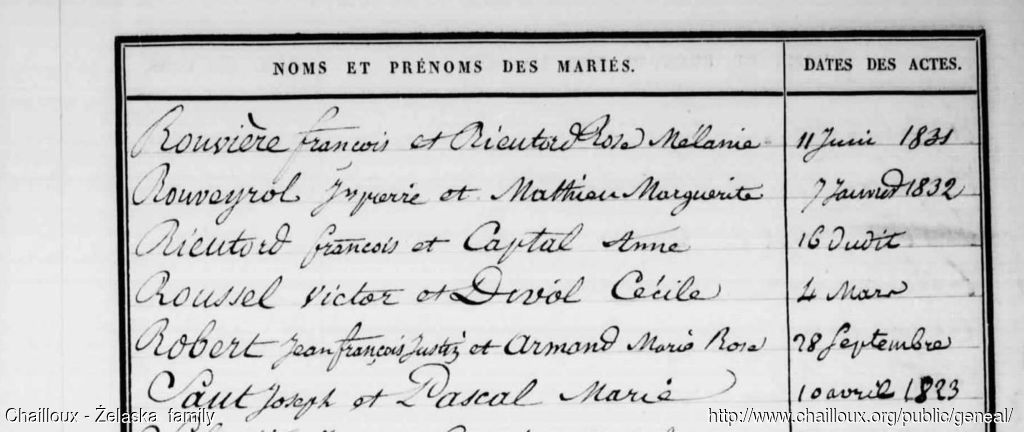 NOMS ET PRÉNOMS DES MARIÉS. DATES DES ACTES.
Rouvière françois et Rieutord Rose Mélanie 11 Juin 1831
Rouveyrol Jn pierre et Mathieu Marguerite 7 Janvier 1832
Rieutord françois et Captal Anne 16 dudit
Roussel Victor et Devôl Cécile 4 Mars
Robert Jean françois Justin et Armand Marie Rose 28 Septembre
Saut Joseph et Pascal Marie 10 avril 1823
Chailloux - Żelaska family http://www.chailloux.org/public/geneal/